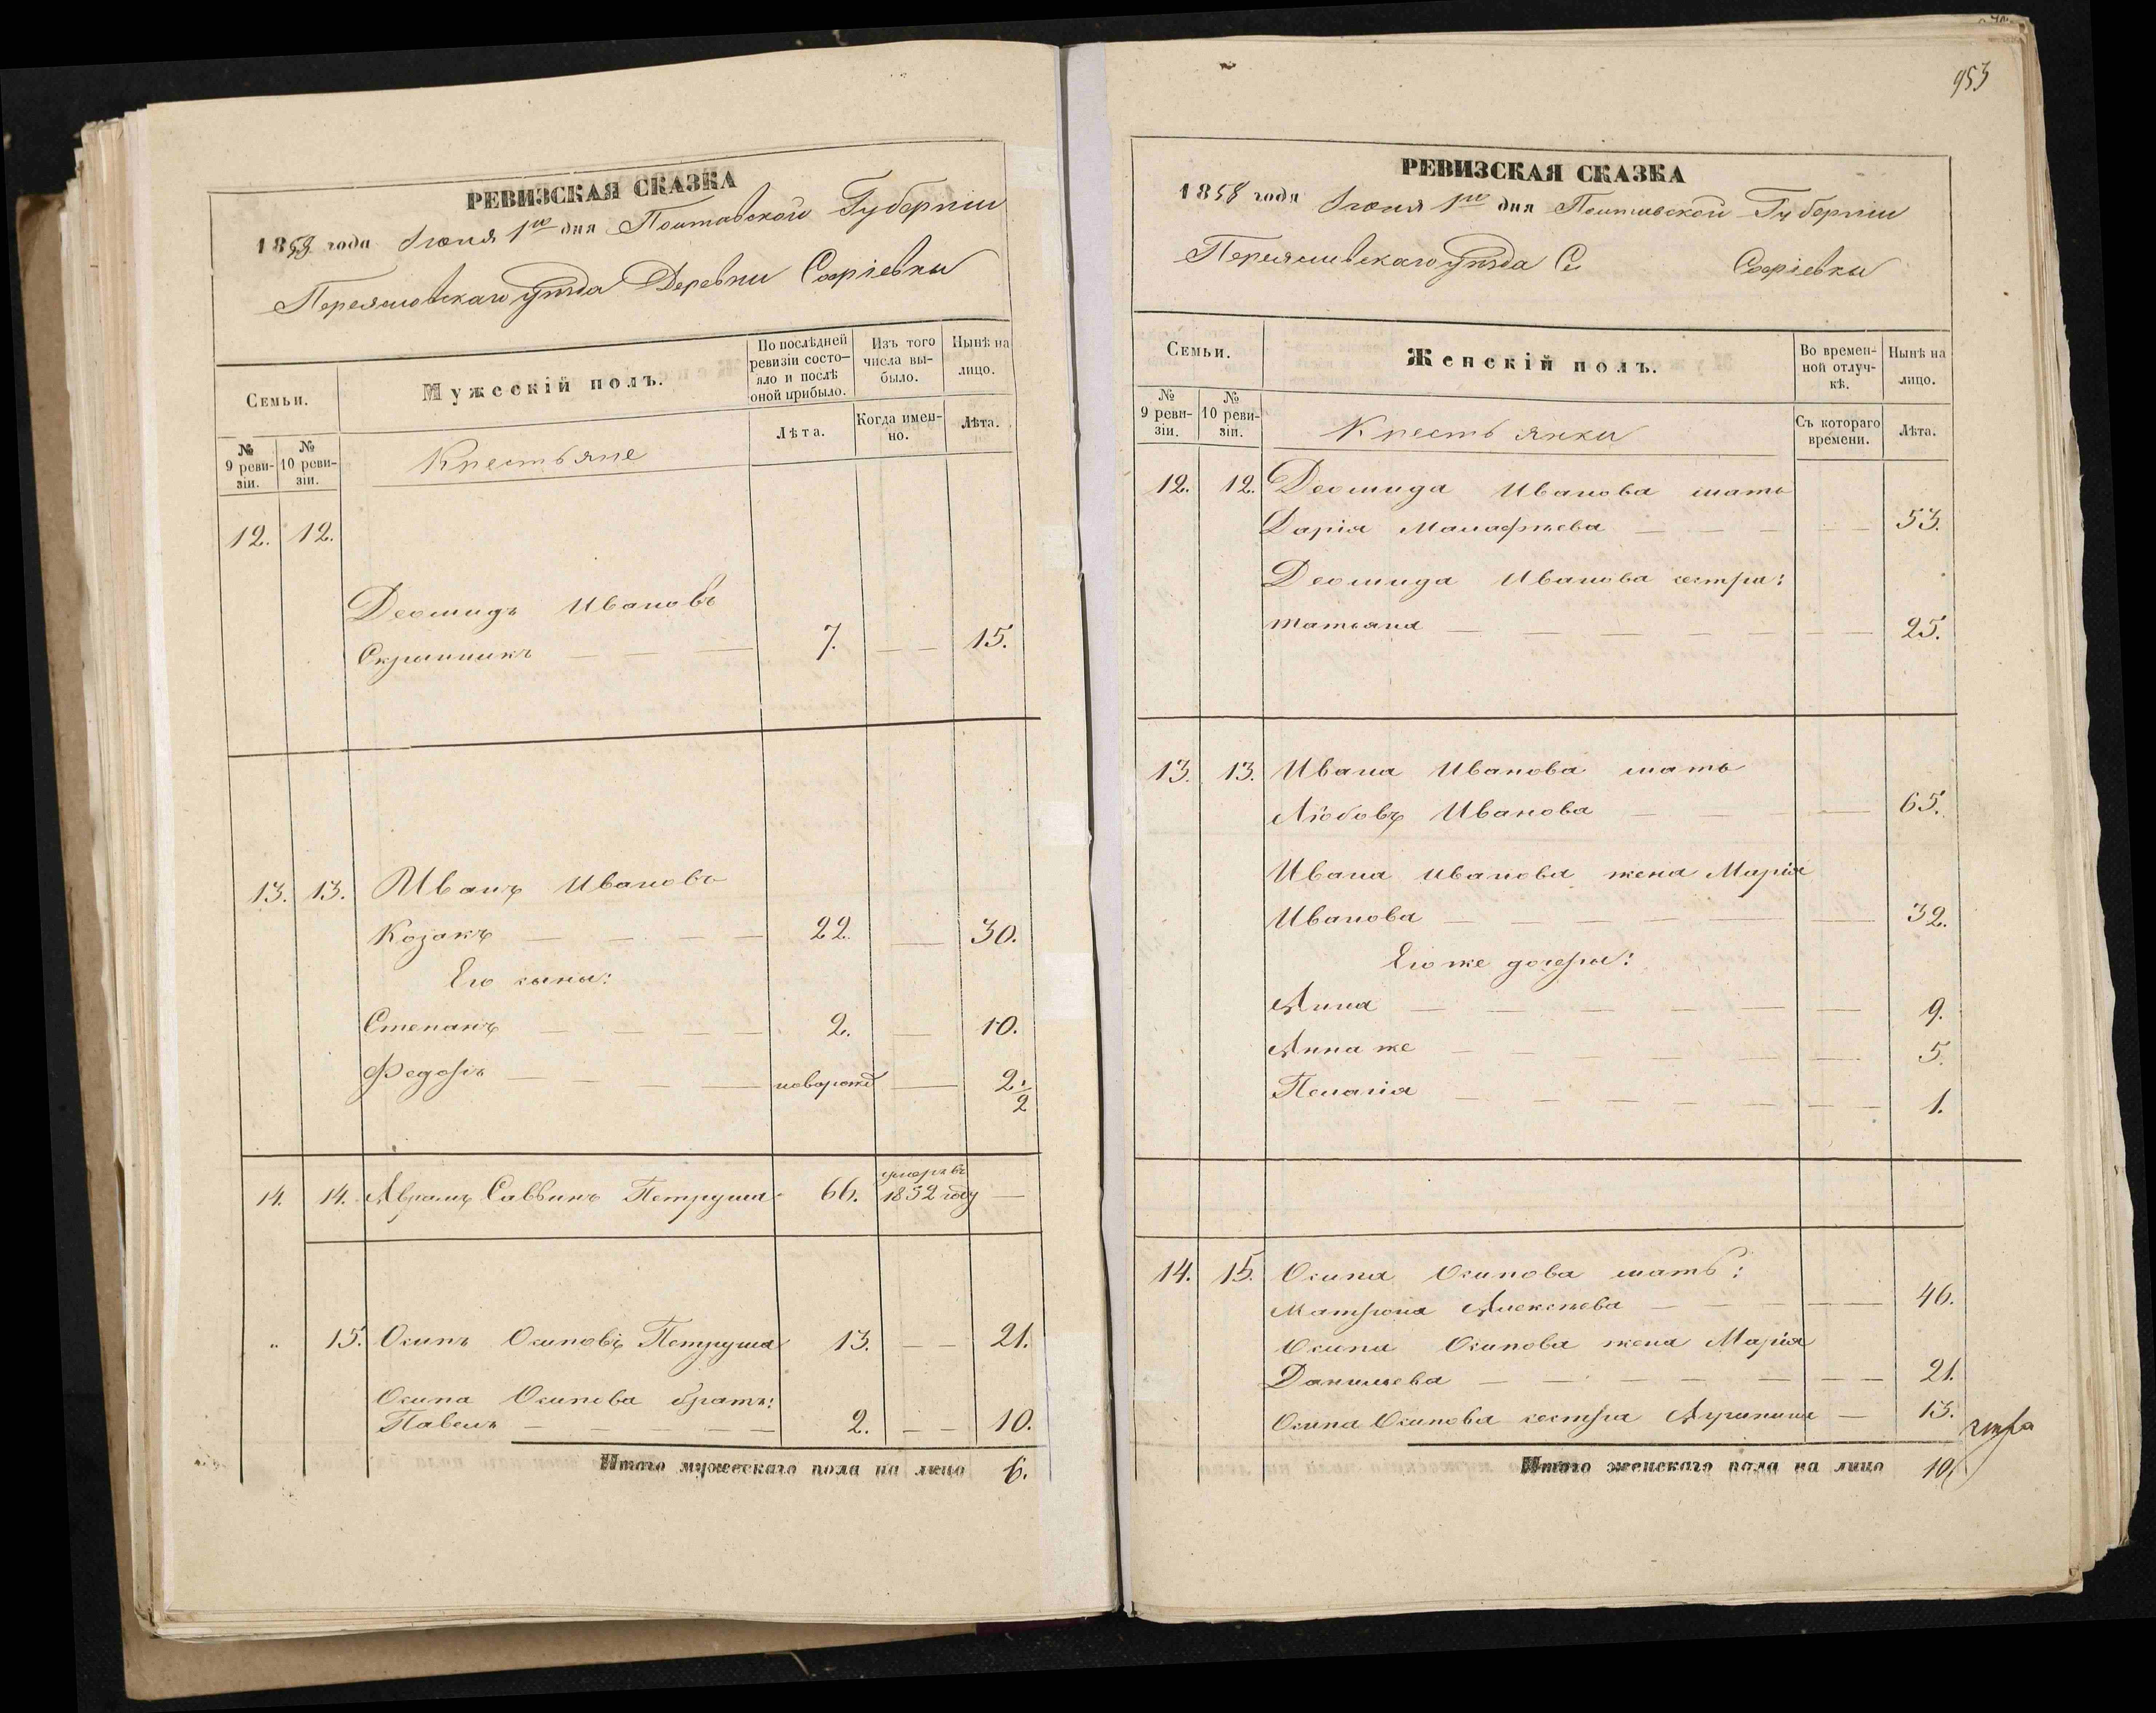 РЕВИЗСКАЯ СКАЗКА
1858 года Іюня 1го дня Полтавской Губерніи
Переяславскаго уѣзда Деревни Софіевки
Семьи.
Мужескій полъ.
По послѣдней ревизіи состо-
яло и послѣ
оной прибыло.
Изъ того
числа вы-
было.
Нынѣ на
лицо.
№
9 реви-
зіи.
№
10 реви-
зіи.
Крестьяне
Лѣта.
Когда имен-
но.
Лѣта.
12. 12.
Деомидъ Ивановъ
7. 15.
13. 13. Иванъ Ивановъ
Козакъ 22. 30.
Его сыны:
Степанъ 2. 10.
Федоръ новорожд 2 1/2
14. 14. Аврамъ Саввинъ Петруша 66. умеръ въ 1852 году
" 15. Осипъ Осиповъ Петруша 13. 21.
Осипа Осипова братъ:
Павелъ 2. 10.
Итого мужескаго пола на лицо 6.
953
РЕВИЗСКАЯ СКАЗКА
1858 года Іюня 1го дня Полтавской Губерніи
Переяславскаго уѣзда Се Софіевки
Семьи.
Женскій полъ.
Во времен-
ной отлуч-
кѣ.
Нынѣ на
лицо.
№
9 реви-
зіи.
№
10 реви-
зіи.
Крестьянки
Съ котораго
времени.
Лѣта.
12. 12. Деомида Иванова мать
Дарія Малафѣева 53.
Деомида Иванова сестра:
татьяна 25.
13. 13. Ивана Иванова мать
Любовъ Иванова 65.
Ивана Иванова жена Марія
Иванова 32.
Его же дочери:
Анна 9.
Анна же 5.
Пелагія 1.
14. 15. Осипа Осипова мать:
Матрона Алексѣева 46.
Осипа Осипова жена Марія
Данилева 21.
Осипа Осипова сестра 13.
Итого женскаго пола на лицо 10